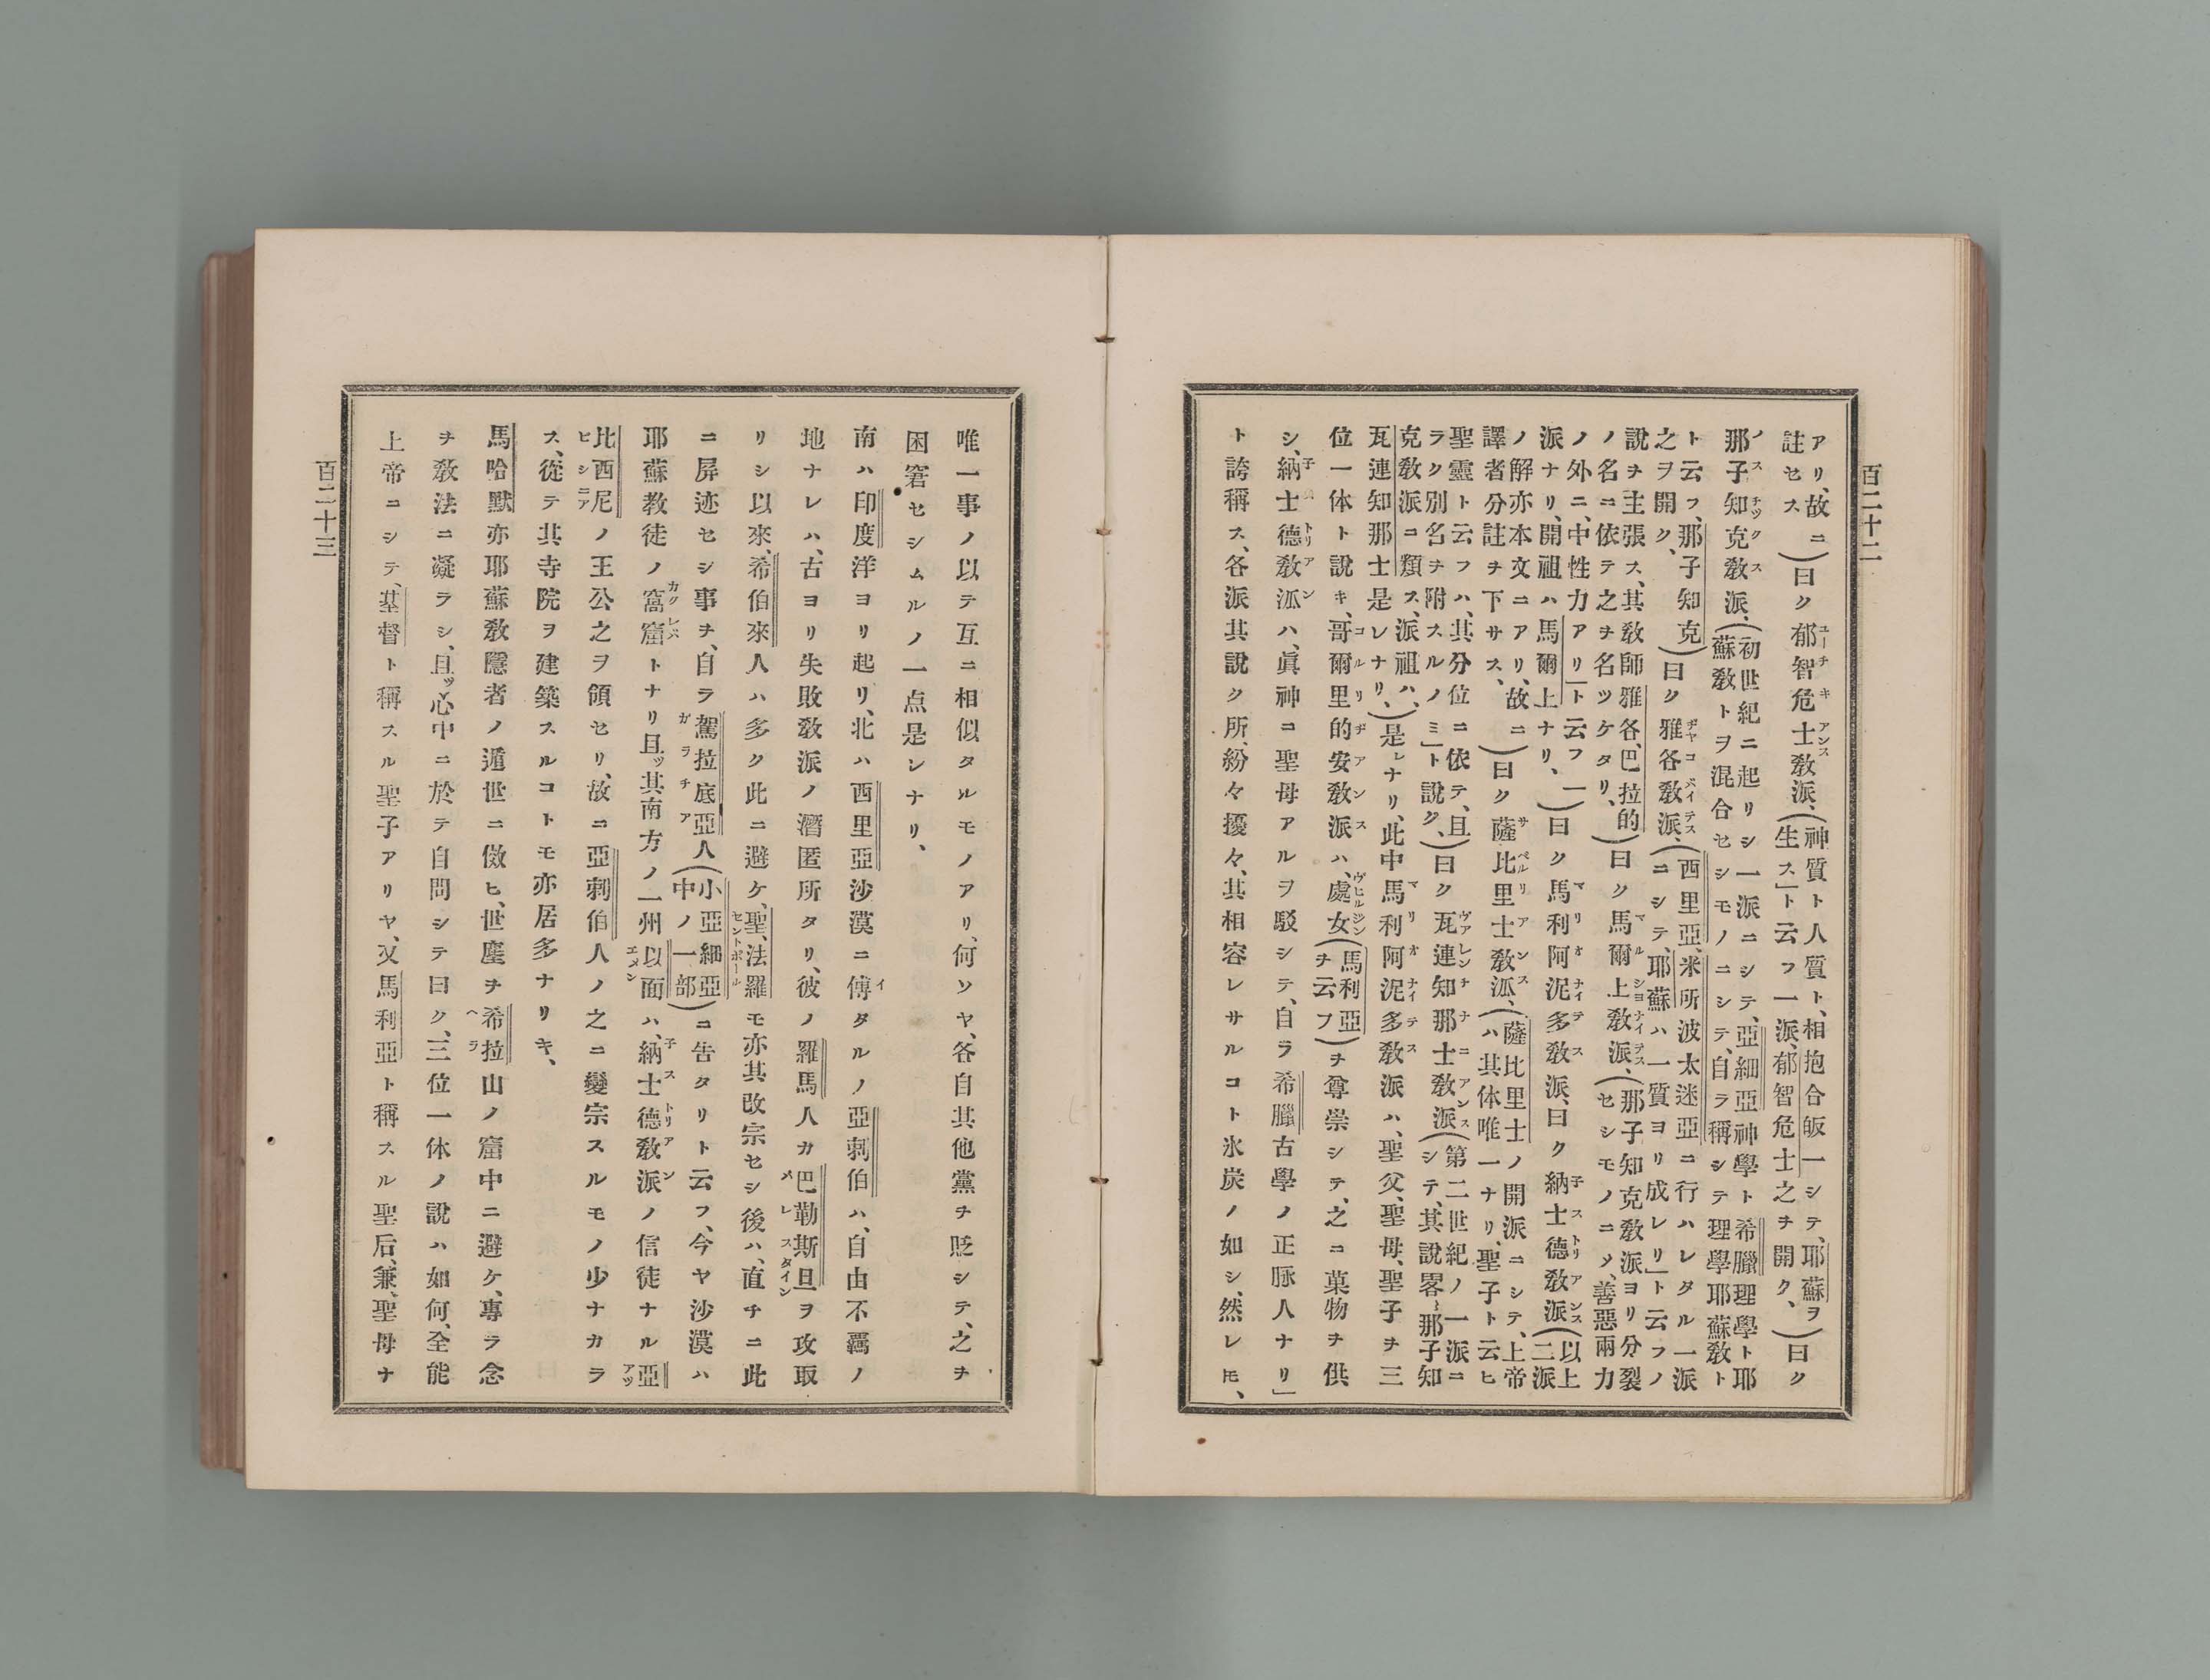 百二十二
アリ、故ニ)曰ク郁智危士教派、(神質ト人質ト、相抱合皈一シテ、耶蘇ヲ
註セス 生ス」ト云フ一派、郁智危士之ヲ開ク、)曰ク
那子知克教派、(初世紀ニ起リシ一派ニシテ、亞細亞神學ト希臘理學ト耶
蘇教トヲ混合セシモノニシテ、自ラ稱シテ理學耶蘇教ト
ト云フ、那子知克)曰ク雅各教派、(西里亞、米所波太迷亞ニ行ハレタル一派
之ヲ開ク、 ニシテ、耶蘇ハ一質ヨリ成レリ」ト云フノ
說ヲ主張ス、其教師雅各、巴拉的)曰ク馬爾上教派、(那子知克教派ヨリ分裂
ノ名ニ依テ之ヲ名ツケタリ、 セシモノニメ、善惡兩力
ノ外ニ、中性力アリ」ト云フ一)曰ク馬利阿泥多教派、曰ク納士德教派(以上
派ナリ、開祖ハ馬爾上ナリ、 二派
ノ解亦本文ニアリ、故ニ)曰ク薩比里士教派、(薩比里士ノ開派ニシテ、上帝
譯者分註ヲ下サス、 ハ其体唯一ナリ、聖子ト云ヒ
聖靈ト云フハ、其分位ニ依テ、且)曰ク瓦連知那士教派(第二世紀ノ一派ニ
ラク別名ヲ附スルノミ」ト說ク、 シテ、其說畧那子知
克教派ニ類ス、派祖ハ、)是レナリ、此中馬利阿泥多教派ハ、聖父、聖母、聖子ヲ三
瓦連知那士是レナリ、
位一体ト說キ、哥爾里的安教派ハ、處女(馬利亞ヲ云フ)ヲ尊崇シテ、之ニ菓物ヲ供
シ、納士德教派ハ、眞神ニ聖母アルヲ駁シテ、自ラ希臘古學ノ正脉人ナリ」
ト誇稱ス、各派其說ク所、紛々擾々、其相容レサルコト氷炭ノ如シ、然レモ、
唯一事ノ以テ互ニ相似タルモノアリ、何ソヤ、各自其他黨ヲ貶シテ、之ヲ
困窘セシムルノ一点是ンナリ、
南ハ印度洋ヨリ起リ、北ハ西里亞沙漠ニ傳タルノ亞剌伯ハ、自由不羈ノ
地ナレハ、古ヨリ失敗教派ノ潛匿所タリ、彼ノ羅馬人カ巴勒斯旦ヲ攻取
リシ以來、希伯來人ハ多ク此ニ避ケ、聖法羅モ亦其改宗セシ後ハ、直チニ此
ニ屏迹セシ事ヲ、自ラ駕拉底亞人(小亞細亞中ノ一部)ニ告タリト云フ、今ヤ沙漠ハ
耶蘇教徒ノ窩窟トナリ且ッ其南方ノ一州以面ハ、納士德教派ノ信徒ナル亞
比西尼ノ王公之ヲ領セリ、故ニ亞剌伯人ノ之ニ變宗スルモノ少ナカラ
ス、從テ其寺院ヲ建築スルコトモ亦居多ナリキ、
馬哈默亦耶蘇教隱者ノ遁世ニ倣ヒ、世塵ヲ希拉山ノ窟中ニ避ケ、專ラ念
ヲ教法ニ凝ラシ、且ッ心中ニ於テ自問シテ曰ク、三位一体ノ說ハ如何、全能
上帝ニシテ、基督ト稱スル聖子アリヤ、又馬利亞ト稱スル聖后、兼、聖母ナ
百二十三